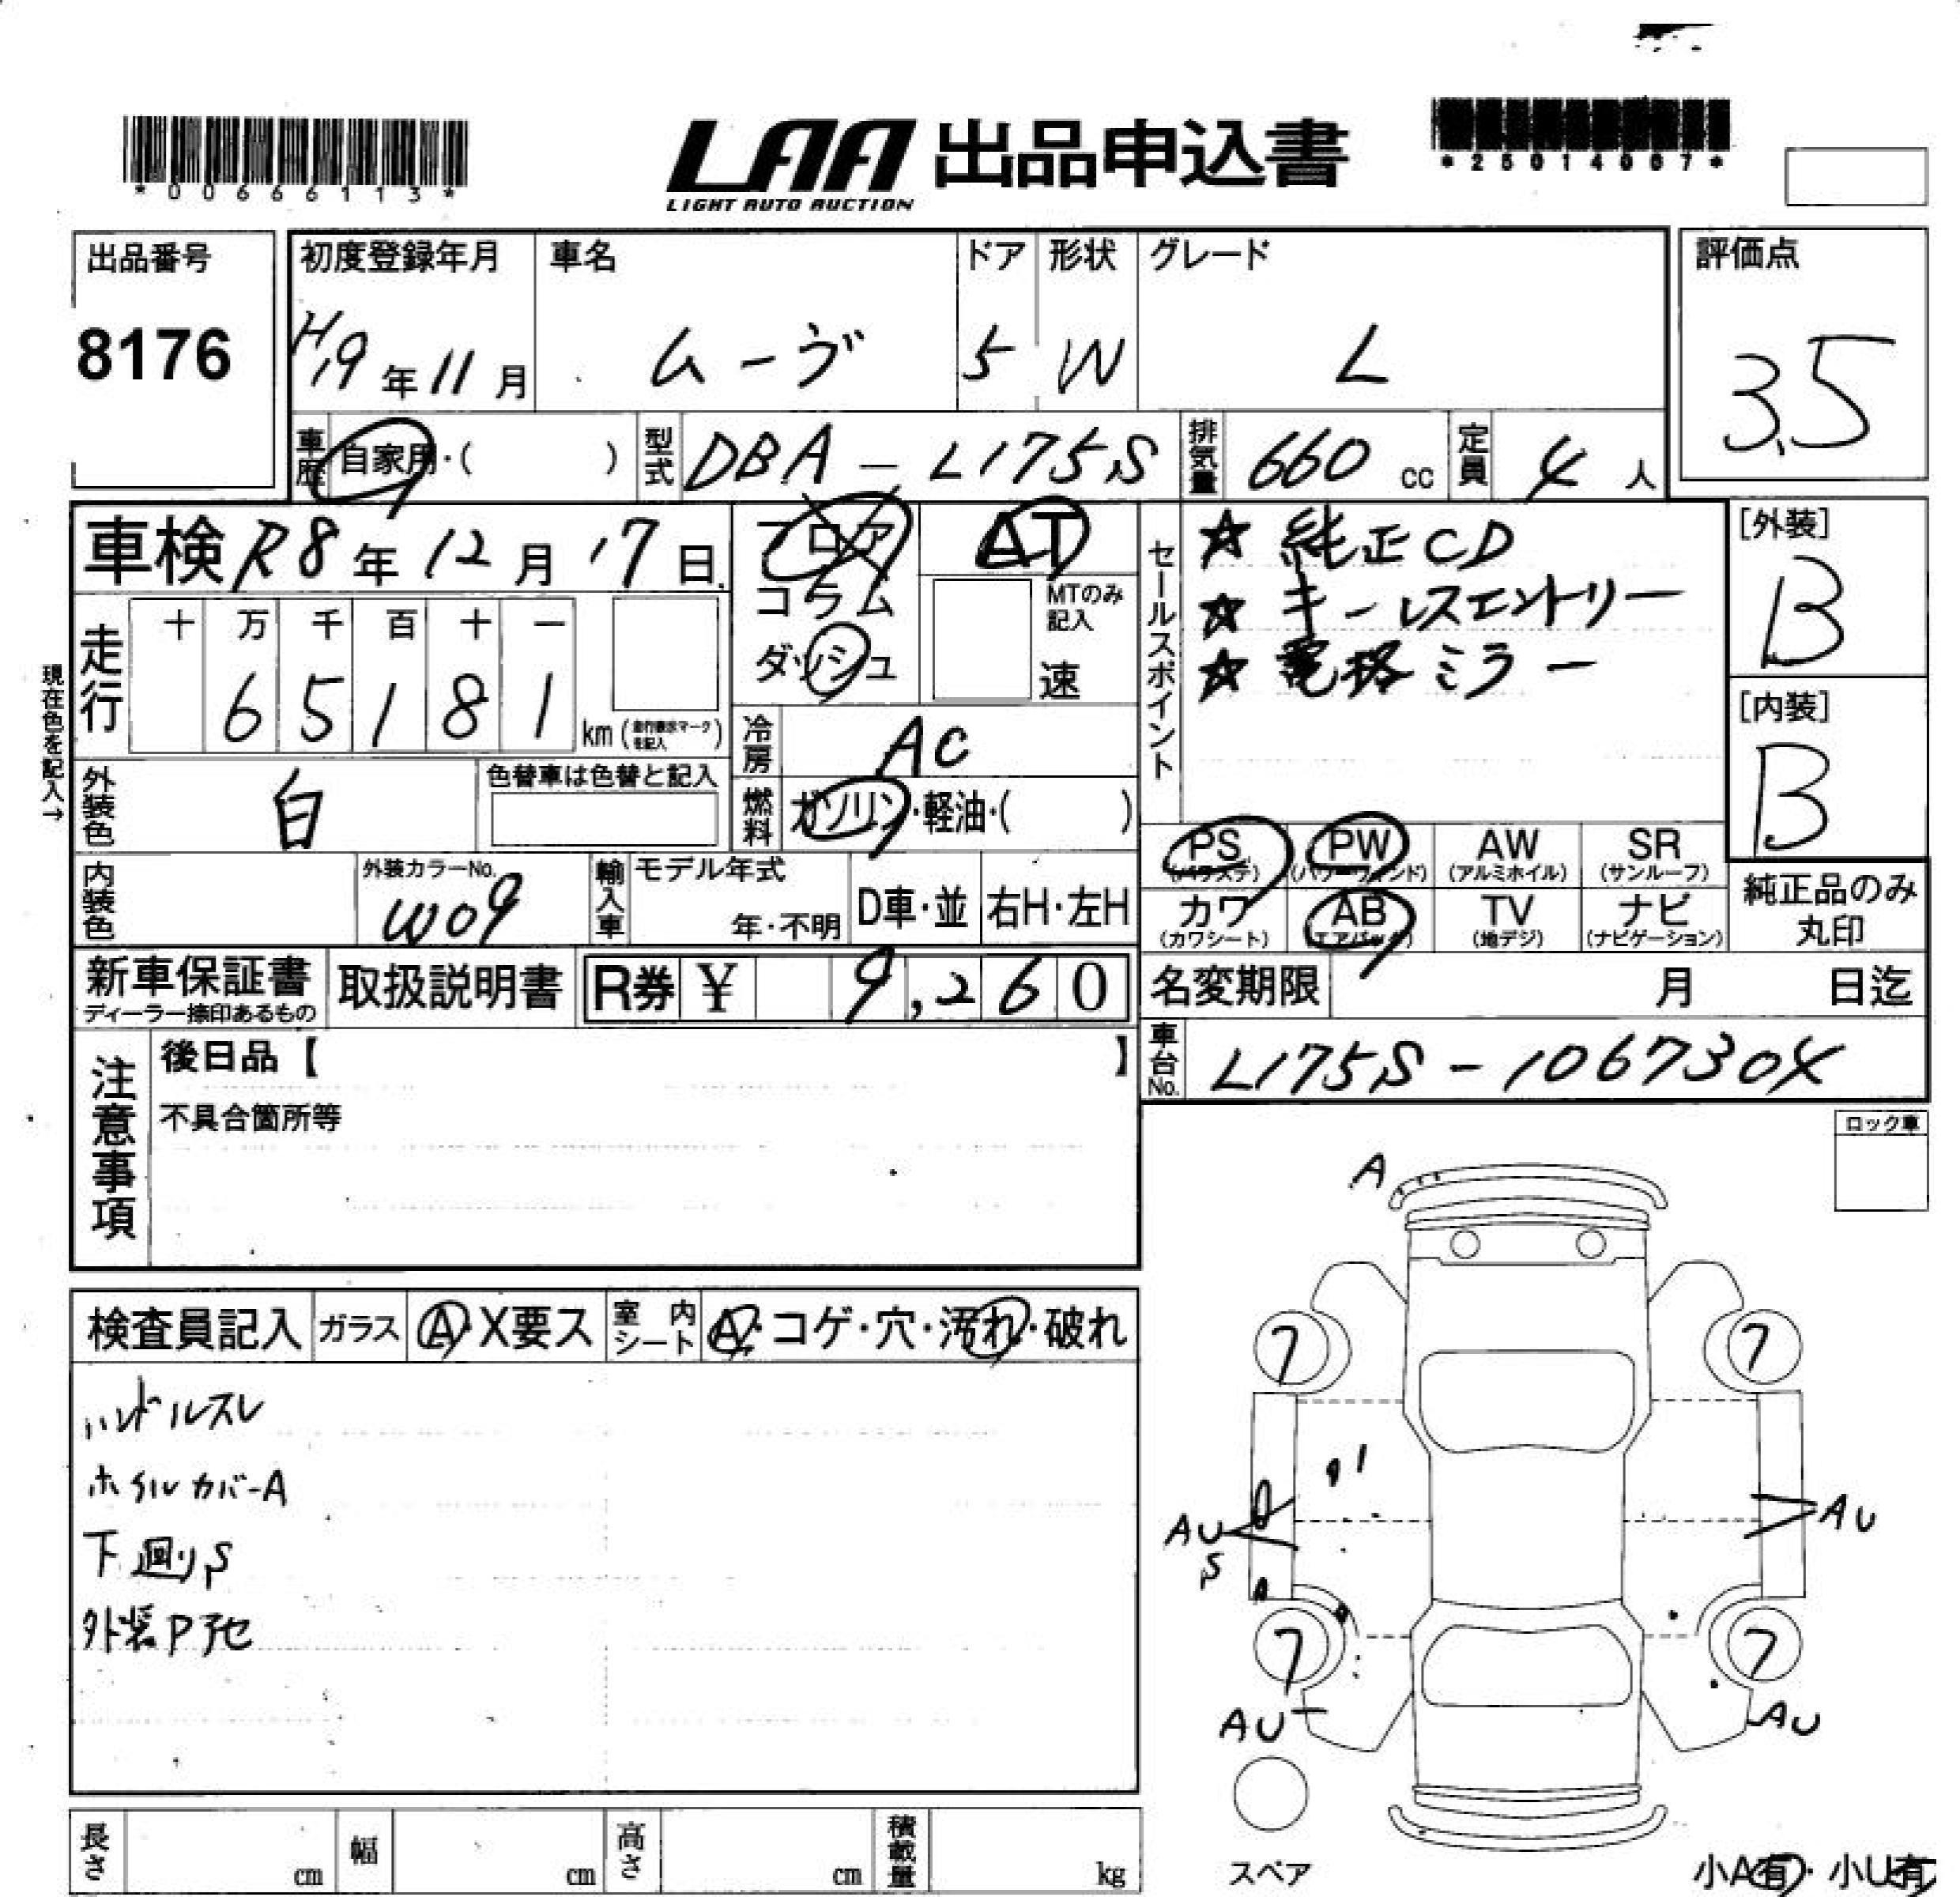 *00666113*
LAA 出品申込書
LIGHT AUTO AUCTION
*25014067*
出品番号
8176
初度登録年月
H19年11月
車名
ムーヴ
ドア
5
形状
W
グレード
L
評価点
3.5
車歴
自家用・( )
型式
DBA-L175S
排気量
660 cc
定員
4人
車検 R8年12月17日
フロア
コラム
ダッシュ
AT
MTのみ記入
速
セールスポイント
☆ 純正CD
☆ キーレスエントリー
☆ 電格ミラー
[外装]
B
[内装]
B
現在色を記入→
走行
十 万 千 百 十 一
6 5 1 8 1
km (走行表示マークを記入)
冷房
AC
外装色
白
色替車は色替と記入
燃料
ガソリン・軽油・( )
PS
(パワステ)
PW
(パワーウィンド)
AW
(アルミホイル)
SR
(サンルーフ)
カワ
(カワシート)
AB
(エアバッグ)
TV
(地デジ)
ナビ
(ナビゲーション)
純正品のみ
丸印
内装色
外装カラーNo.
W09
輸入車
モデル年式
年・不明
D車・並
右H・左H
新車保証書
ディーラー捺印あるもの
取扱説明書
R券 ¥ 9,260
名変期限 月 日迄
車台No.
L175S-1067304
注意事項
後日品【 】
不具合箇所等
ロック車
検査員記入
ガラス
A・X要ス
室内シート
A・コゲ・穴・汚れ・破れ
ハンドルスレ
ホイルカバーA
下廻りS
外装P子セ
A
7
7
AU
S
AU
7
7
AU
AU
スペア
小A有・小U有
長さ cm
幅 cm
高さ cm
積載量 kg